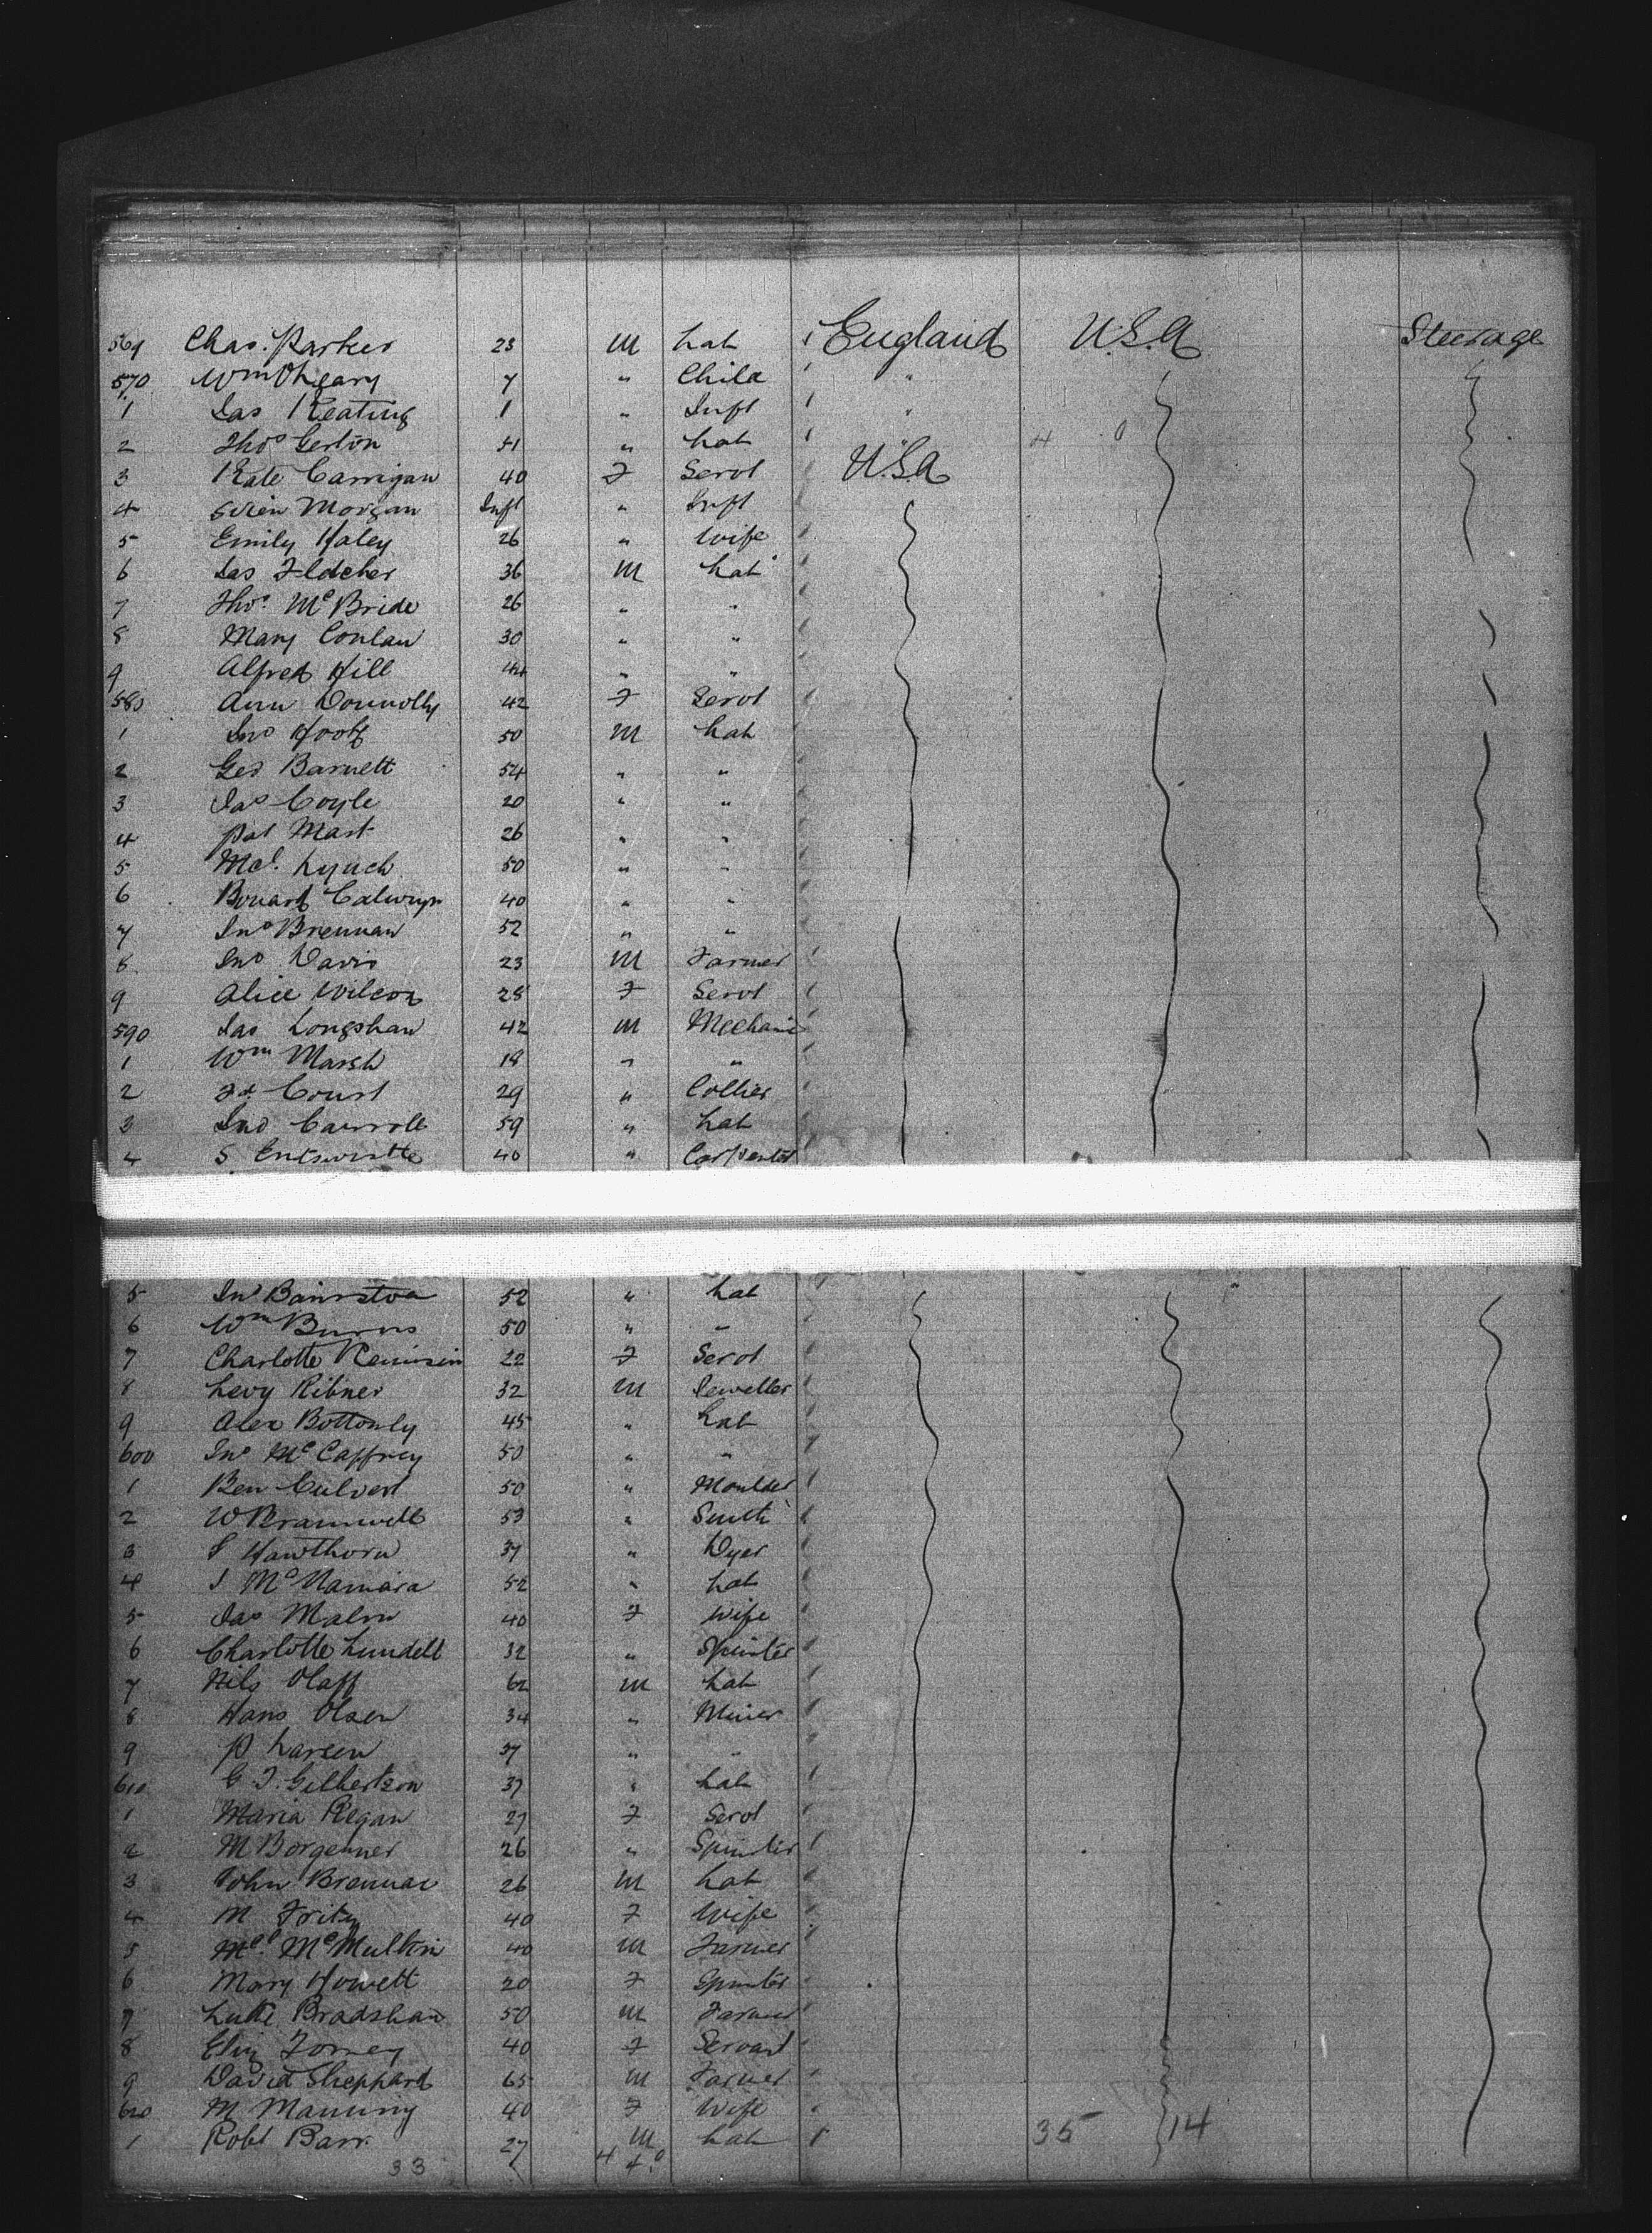 569 Chas. Parker 23 M Lab England U.S.A Steerage
570 Wm O'Leary 7 " Child "
1 Jas Keating 1 " Inft "
2 Thos Gerton 51 " Lab 4 0
3 Kate Carrigan 40 F Servt U.S.A
4 Morgan Inft " Inft
5 Emily Haley 26 " Wife
6 Jas Fletcher 36 M Lab
7 Thos. McBride 26 " "
8 Mary Conlan 30 " "
9 Alfred Hill 44 " "
580 Ann Donnolly 42 F Servt
1 Jno 50 M Lab
2 Geo Barnett 54 " "
3 Jas Coyle 20 " "
4 Pat Mart 26 " "
5 Mcl. Lynch 50 " "
6 40 " "
7 Jno Brennan 52 " "
8 Jno Davis 23 M Farmer
9 Alice Wilcox 28 F Servt
590 Jas Longshaw 42 M Mechanic
1 Wm Marsh 19 " "
2 Court 29 " Collier
3 Jno Carroll 59 " Lab
4 S Entswistle 40 " Carpenter
5 Jno Bairstow 52 " Lab
6 Wm Burns 50 " "
7 Charlotte 22 F Servt
8 Levy Ribner 32 M Jeweller
9 Alex Bottomly 45 " Lab
600 Jno McCaffrey 50 " "
1 Ben Culvert 50 " Moulder
2 W Bramwell 53 " Smith
3 S Hawthorn 37 " Dyer
4 J McNamara 52 " Lab
5 Jas Malon 40 F Wife
6 Charlotte Lundell 32 " Spinster
7 Nils Olaff 62 M Lab
8 Hans Olsen 34 " Miner
9 P Larsen 37 " "
610 G J. Gilbertson 37 " Lab
1 Maria Regan 27 F Servt
2 M Borgenner 26 " Spinster
3 John Brennan 26 M Lab
4 M Fritz 40 F Wife
5 Mcl. McMullin 40 M Farmer
6 Mary Howett 20 F Spinster
7 Luke Bradshaw 50 M Farmer
8 Eliz Forney 40 F Servant
9 David Sheppard 65 M Farmer
620 M Manning 40 F Wife
1 Robt Barr. 27 M Lab 35 14
33 4 4.0